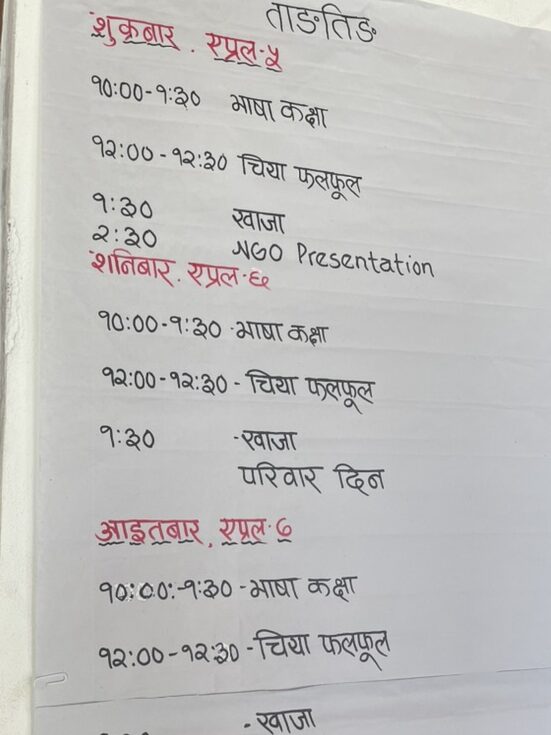 ताङतिङ
शुक्रबार . एप्रल-५
१०:००-१:३० भाषा कक्षा
१२:०० - १२:३० चिया फलफूल
१:३० खाजा
२:३० NGO Presentation
शनिबार . एप्रल-६
१०:००-१:३० -भाषा कक्षा
१२:००-१२:३० - चिया फलफूल
१:३० -खाजा
परिवार दिन
आइतबार . एप्रल-७
१०:००:-१:३० - भाषा कक्षा
१२:०० - १२:३० - चिया फलफूल
- खाजा